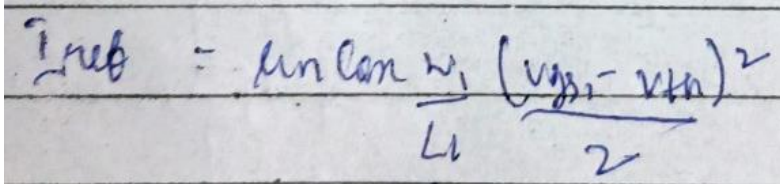 Iref = μn Cox W1/L1 (Vgs1 - Vtn)²/2